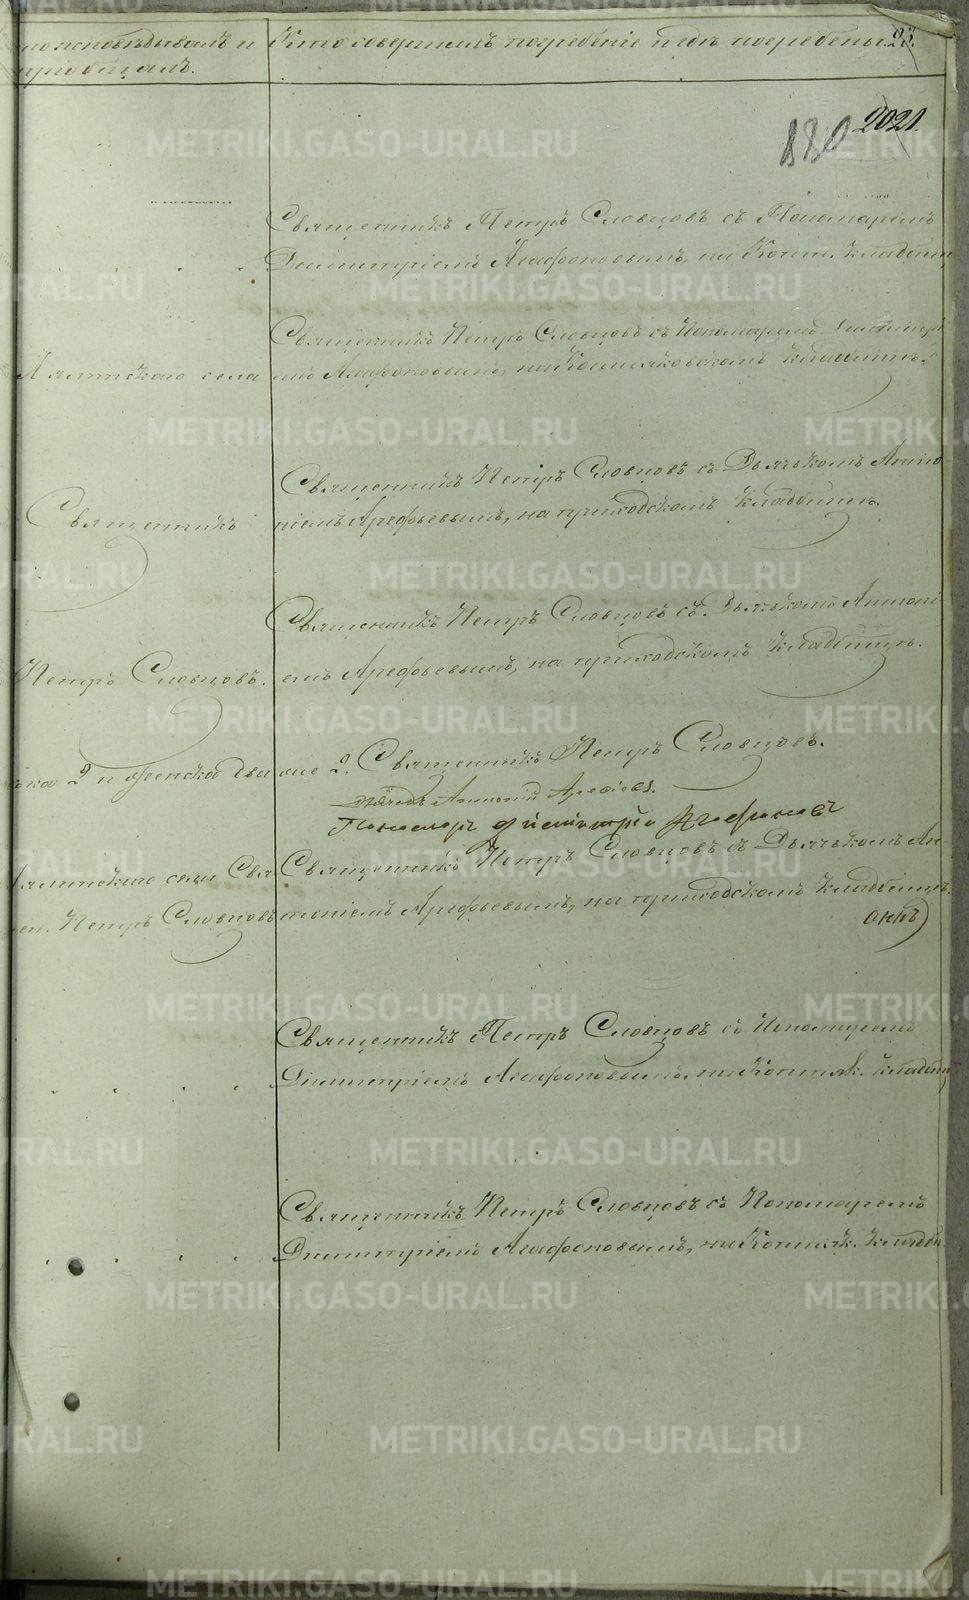 исповѣдывалъ и
пріобщалъ.
Кто совершалъ погребеніе и гдѣ погребены.
23.
2021.
880
Священникъ Петръ Словцовъ съ Пономаремъ
Димитріемъ Агафоновымъ, на кладбищ
Священникъ Петръ Словцовъ съ Пономаремъ Димитрі
села
емъ Агафоновымъ, на кладбищѣ.
Священникъ Петръ Словцовъ съ Дьячькомъ Анто
Священникъ
ніемъ Арефьевымъ, на приходскомъ кладбищѣ.
Священникъ Петръ Словцовъ съ Дьячькомъ Антоні
Петръ Словцовъ.
емъ Арефьевымъ, на приходскомъ кладбищѣ.
ска 2 и женска два
2. Священникъ Петръ Словцовъ.
Дьячекъ Антоній Арефьевъ.
Пономарь Димитрій Агафоновъ
села Свя
Священникъ Петръ Словцовъ съ Дьячькомъ Ан
щен. Петръ Словцовъ
тоніемъ Арефьевымъ, на приходскомъ кладбищѣ.
Священникъ Петръ Словцовъ съ Пономаремъ
Димитріемъ Агафоновымъ, на кладбищ
Священникъ Петръ Словцовъ съ Пономаремъ
Димитріемъ Агафоновымъ, на кладби
METRIKI.GASO-URAL.RU